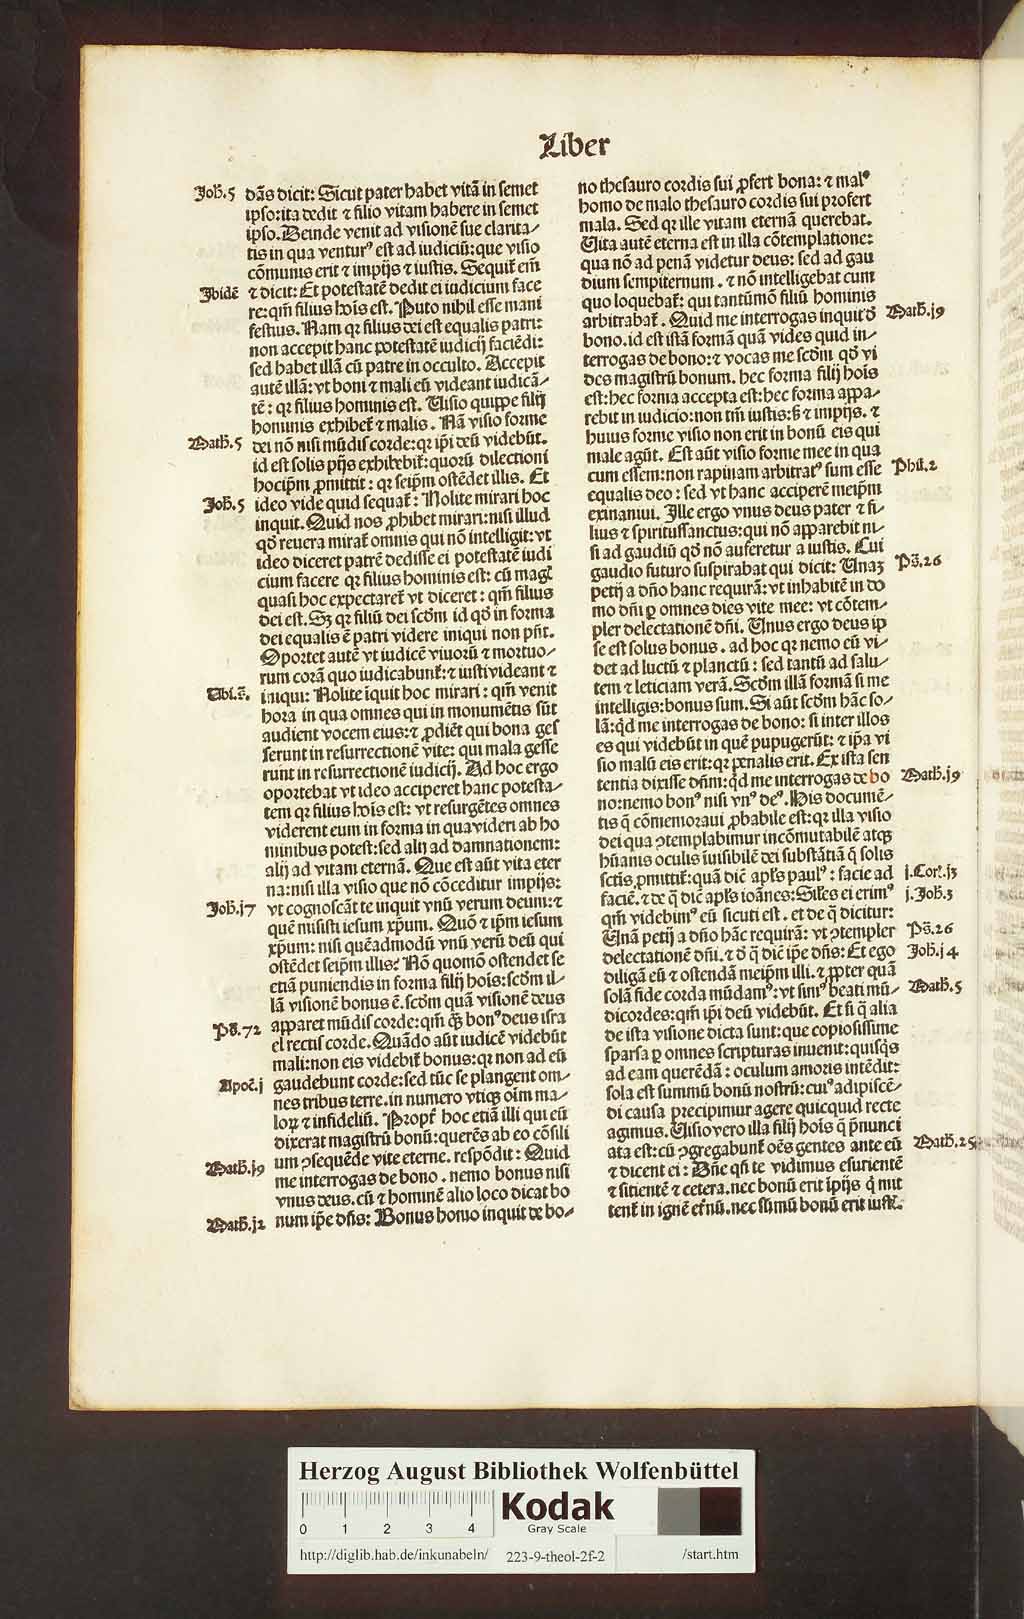 Liber
Joh̄.5
dās dicit: Sicut pater habet vitā in semet
ipso: ita dedit ⁊ filio vitam habere in semet
ipso. Deinde venit ad visionē sue clarita/
tis in qua ventur⁹ est ad iudiciū: que visio
cōmunis erit ⁊ impijs ⁊ iustis. Sequit̄ em̄
Jbidē
⁊ dicit: Et potestatē dedit ei iudicium face
re: qm̄ filius hoīs est. Puto nihil esse mani
festius. Nam qꝛ filius dei est equalis patri:
non accepit hanc potestatē iudicij faciēdi:
sed habet illā cū patre in occulto. Accepit
autē illā: vt boni ⁊ mali eū videant iudicā/
tē: qꝛ filius hominis est. Uisio quippe filij
hominis exhibet̄ ⁊ malis. Nā visio forme
Math̄.5
dei nō nisi mūdis corde: qꝛ ip̄i deū videbūt.
id est solis pijs exhibebit̄: quorū dilectioni
hocip̄m ꝓmittit: qꝛ seip̄m ostēdet illis. Et
Joh̄.5
ideo vide quid sequat̄: Nolite mirari hoc
inquit. Quid nos ꝓhibet mirari: nisi illud
qd̄ reuera mirat̄ omnis qui nō intelligit: vt
ideo diceret patrē dedisse ei potestatē iudi
cium facere qꝛ filius hominis est: cū magꝭ
quasi hoc expectaret̄ vt diceret: qm̄ filius
dei est. Sꝫ qꝛ filiū dei scd̄m id qd̄ in forma
dei equalis ē patri videre iniqui non pn̄t.
Oportet autē vt iudicē viuorū ⁊ mortuo/
rum corā quo iudicabunt̄: ⁊ iusti videant ⁊
Ubi.s̄.
iniqui: Nolite īquit hoc mirari: qm̄ venit
hora in qua omnes qui in monumētis sūt
audient vocem eius: ⁊ ꝓdiēt qui bona ges
serunt in resurrectionē vite: qui mala gesse
runt in resurrectionē iudicij. Ad hoc ergo
oportebat vt ideo acciperet hanc potesta/
tem qꝛ filius hoīs est: vt resurgētes omnes
viderent eum in forma in qua videri ab ho
minibus potest: sed alij ad damnationem:
alij ad vitam eternā. Que est aūt vita eter
na: nisi illa visio que nō cōceditur impijs:
Joh̄.j7
vt cognoscāt te inquit vnū verum deum: ⁊
quē misisti iesum xp̄um. Quō ⁊ ip̄m iesum
xp̄um: nisi quēadmodū vnū verū deū qui
ostēdet seip̄m illis: Nō quomō ostendet se
etiā puniendis in forma filij hoīs: scd̄m il/
lā visionē bonus ē. scd̄m quā visionē deus
Pš.72
apparet mūdis corde: qm̄ ꝙ̄ bon⁹ deus isra
el rectis corde. Quādo aūt iudicē videbūt
mali: non eis videbit̄ bonus: qꝛ non ad eū
Apoc̄.j
gaudebunt corde: sed tūc se plangent om/
nes tribus terre. in numero vtiqꝫ oīm ma/
loꝝ ⁊ infideliū. Propt̄ hoc etiā illi qui eū
dixerat magistrū bonū: querēs ab eo cōsili
Math̄.j9
um ꝯsequēde vite eterne. respōdit: Quid
me interrogas de bono. nemo bonus nisi
vnus deus. cū ⁊ hominē alio loco dicat bo
Math̄.j2
num ip̄e dn̄s: Bonus homo inquit de bo/
no thesauro cordis sui ꝓfert bona: ⁊ mal⁹
homo de malo thesauro cordis sui profert
mala. Sed qꝛ ille vitam eternā querebat.
Uita autē eterna est in illa cōtemplatione:
qua nō ad penā videtur deus: sed ad gau
dium sempiternum. ⁊ nō intelligebat cum
quo loquebat̄: qui tantūmō filiū hominis
Math̄.j9
arbitrabat̄. Quid me interrogas inquit d̄
bono. id est istā formā quā vides quid in/
terrogas de bono: ⁊ vocas me scd̄m qd̄ vi
des magistrū bonum. hec forma filij hoīs
est: hec forma accepta est: hec forma appa/
rebit in iudicio: non tm̄ iustis: sꝫ ⁊ impijs. ⁊
huius forme visio non erit in bonū eis qui
male agūt. Est aūt visio forme mee in qua
Phil̄.2
cum essem: non rapinam arbitrat⁹ sum esse
equalis deo: sed vt hanc acciperē meip̄m
exinaniui. Ille ergo vnus deus pater ⁊ fi/
lius ⁊ spiritussanctus: qui nō apparebit ni/
si ad gaudiū qd̄ nō auferetur a iustis. Cui
Pš.26
gaudio futuro suspirabat qui dicit: Unaꝫ
petij a dn̄o hanc requirā: vt inhabitē in do
mo dn̄i ꝑ omnes dies vite mee: vt cōtem/
pler delectationē dn̄i. Unus ergo deus ip
se est solus bonus. ad hoc qꝛ nemo eū vi/
det ad luctū ⁊ planctū: sed tantū ad salu/
tem ⁊ leticiam verā. Scd̄m illā formā si me
intelligis: bonus sum. Si aūt scd̄m hāc so/
lā: qd̄ me interrogas de bono: si inter illos
es qui videbūt in quē pupugerūt: ⁊ ip̄a vi
sio malū eis erit: qꝛ penalis erit. Ex ista sen
Math̄.j9
tentia dixisse dn̄m: qd̄ me interrogas de bo
no: nemo bon⁹ nisi vn⁹ de⁹. His documē/
tis q̄ cōmemoraui ꝓbabile est: qꝛ illa visio
dei qua ꝯtemplabimur incōmutabilē atqꝫ
hūanis oculis īuisibilē dei substātiā q̄ solis
j.Cor̄.j3
sctīs ꝓmittit̄: quā dic̄ apl̄s paul⁹: facie ad
j.Joh̄.3
faciē. ⁊ de q̄ dic̄ apl̄s ioānes: Sil̄es ei erim⁹
qm̄ videbim⁹ eū sicuti est. et de q̄ dicitur:
Pš.26
Unā petij a dn̄o hāc requirā: vt ꝯtempler
Joh̄.j4
delectationē dn̄i. ⁊ d̄ q̄ dic̄ ip̄e dn̄s: Et ego
diligā eū ⁊ ostendā meip̄m illi. ⁊ ꝓpter quā
Math̄.5
solā fide corda mūdam⁹: vt sim⁹ beati mū/
dicordes: qm̄ ip̄i deū videbūt. Et si q̄ alia
de ista visione dicta sunt: que copiosissime
sparsa ꝑ omnes scripturas inuenit: quisq̄s
ad eam querēdā: oculum amoris intēdit:
sola est summū bonū nostrū: cui⁹ adipiscē/
di causa precipimur agere quicquid recte
agimus. Uisio vero illa filij hoīs q̄ p̄nunci
Math̄.25
ata est: cū ꝯgregabunt̄ oēs gentes ante eū
⁊ dicent ei: Dn̄e qn̄ te vidimus esurientē
⁊ sitientē ⁊ cetera. nec bonū erit īpijs q̇ mit
tent̄ in ignē et̄nū. nec sūmū bonū erit iustꝭ.
Herzog August Bibliothek Wolfenbüttel
Kodak
Gray Scale
0 1 2 3 4
http://diglib.hab.de/inkunabeln/ 223-9-theol-2f-2 /start.htm